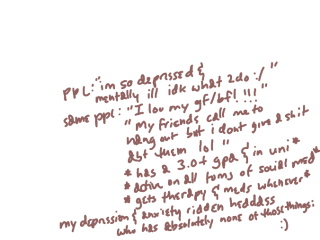 PPL: "im so depressed &
mentally ill idk what 2do :/ "
same ppl: "I lov my gf/bf! !!! "
" My friends call me to
hang out but i dont give a shit
abt them lol "
* has a 3.0+ gpa & in uni *
* active on all forms of social med*
* gets therapy & meds whenever*
my depression & anxiety ridden
who has absolutely none of those things:
:)